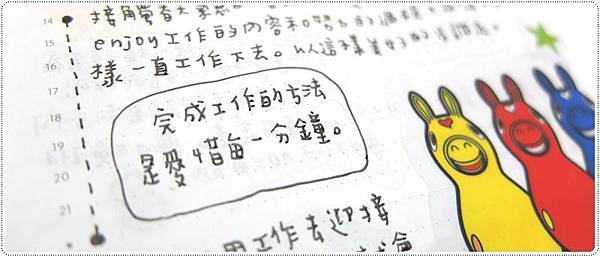 14
15
16
17
18
19
20
21
大家
enjoy工作的內容和努力的過程
樣一直工作下去。以這樣美好的步調
完成工作的方法
是愛惜每一分鐘。
用工作去迎接